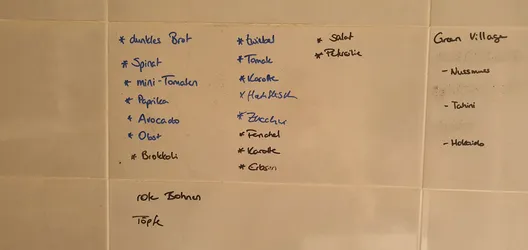 * dunkles Brot
* Spinat
* mini-Tomaten
* Paprika
* Avocado
* Obst
* Brokkoli
rote Bohnen
Töpfe
* Zwiebel
* Tomate
* Karotte
* Zucchini
* Fenchel
* Karotte
* Erbsen
* Salat
* Petersilie
Green Village
- Nussmus
- Tahini
- Hokkaido